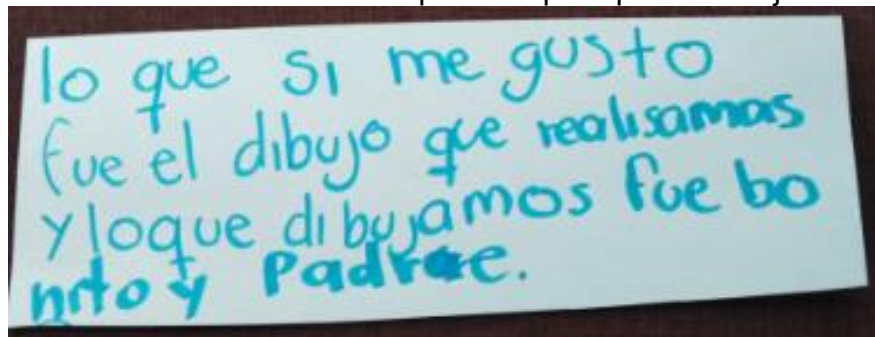 lo que si me gusto
fue el dibujo que realisamos
y loque dibujamos fue bo
nito y Padre.